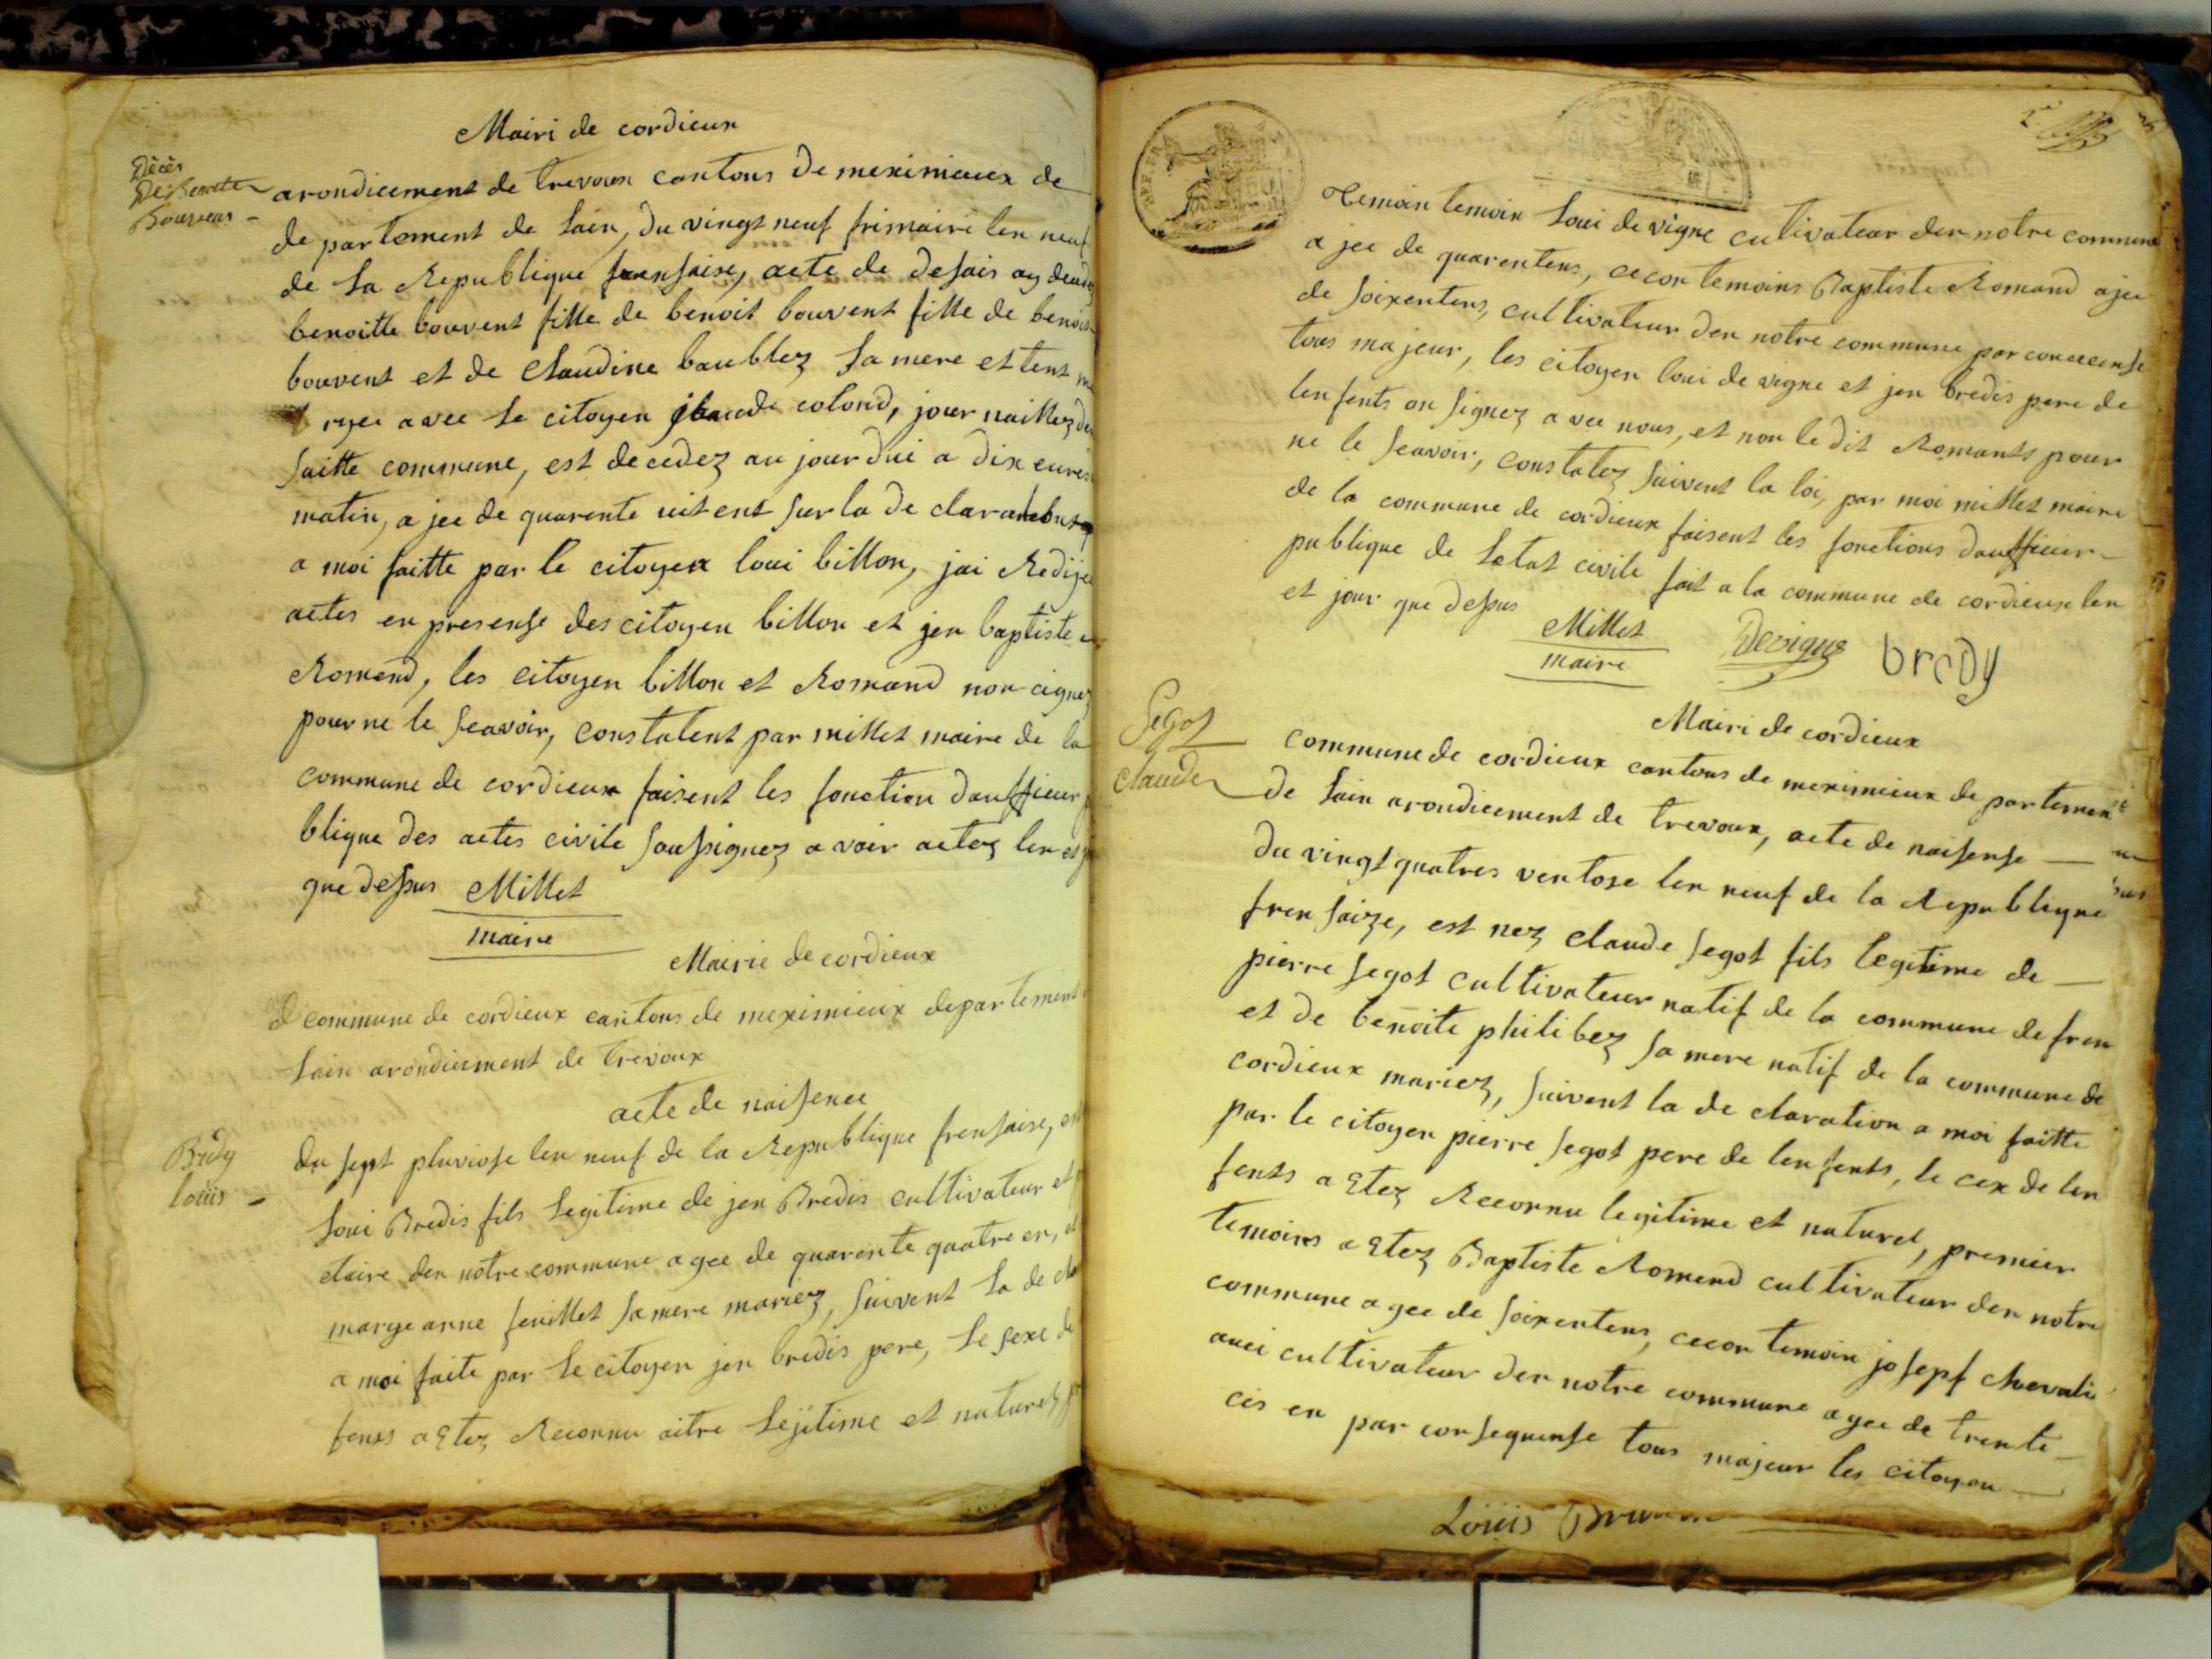 Mairi de cordieux
Décès
De Benoite
Bouvens -
arondicement de trevoux cantons de meximieux de
de partement de lain, du vingt neuf frimaire len neuf
de la Republique fransaise, acte de desais
benoitte bouvent fille de benoit bouvent fille de benoit
bouvent et de Claudine baublez sa mere et tent
ryee avec le citoyen colond, jour naillez de
saitte commune, est decedez au jourdui a dix eures
matin, a jee de quarente uit ent sur la de claration
a moi faitte par le citoyen loui billon, jai Redije
actes en presense des citoyen billon et jen baptiste
Romend, les citoyen billon et Romand non cignez
pour ne le seavoir, constatent par millet maire de la
commune de cordieux faisent les fonction daufficier
blique des actes civile sousignez a voir actez len et
que desus Millet
maire
Mairie de cordieux
commune de cordieux cantons de meximieux departement
lain arondicment de trevoux
acte de naisence
Bridy
louis -
du sept pluviose len neuf de la Republique frensaise, est
loui Bredis fils legitime de jen Bredis cultivateur et
etaire den notre commune agee de quarente quatre en, et
marye anne feuillet sa mere mariez, suivent la de cla
a moi faite par le citoyen jen bredis pere, le sexe de
fents a Etez Reconnu aitre lejitime et naturel
temoin temoin loui de vigne cultivateur den notre commune
a jee de quarentens, cecon temoins Baptiste Romand ajee
de soixentens, cultivateur den notre commune par concecense
tous majeur, les citoyen loui de vigne et jen bredis pere de
lenfents on signez avec nous, et non le dit Romants pour
ne le seavoir, constatez suivent la loi, par moi millet maire
de la commune de cordieux faisent les fonctions daufficier
publique de letat civile fait a la commune de cordieux len
et jour que desus
Millet
maire
Devigne
bredy
Mairi de cordieux
Segot
Claude
commune de cordieux cantons de meximieux de partement
de lain arondicement de trevoux, acte de naisense
du vingt quatres ventose len neuf de la Republique
fren saize, est nez claude segot fils legitime de
pierre segot cultivateur natif de la commune de fren
et de benoite philibez sa mere natif de la commune de
cordieux mariez, suivent la de claration a moi faitte
par le citoyen pierre segot pere de lenfents, le cex de len
fents a Etez Reconnu legitime et naturel, premier
temoins a Etez Baptiste Romend cultivateur den notre
commune agee de soixentens, cecon temoin josepf chevali
auci cultivateur den notre commune agee de trente
cis en par consequense tous majeur les citoyen
Louis